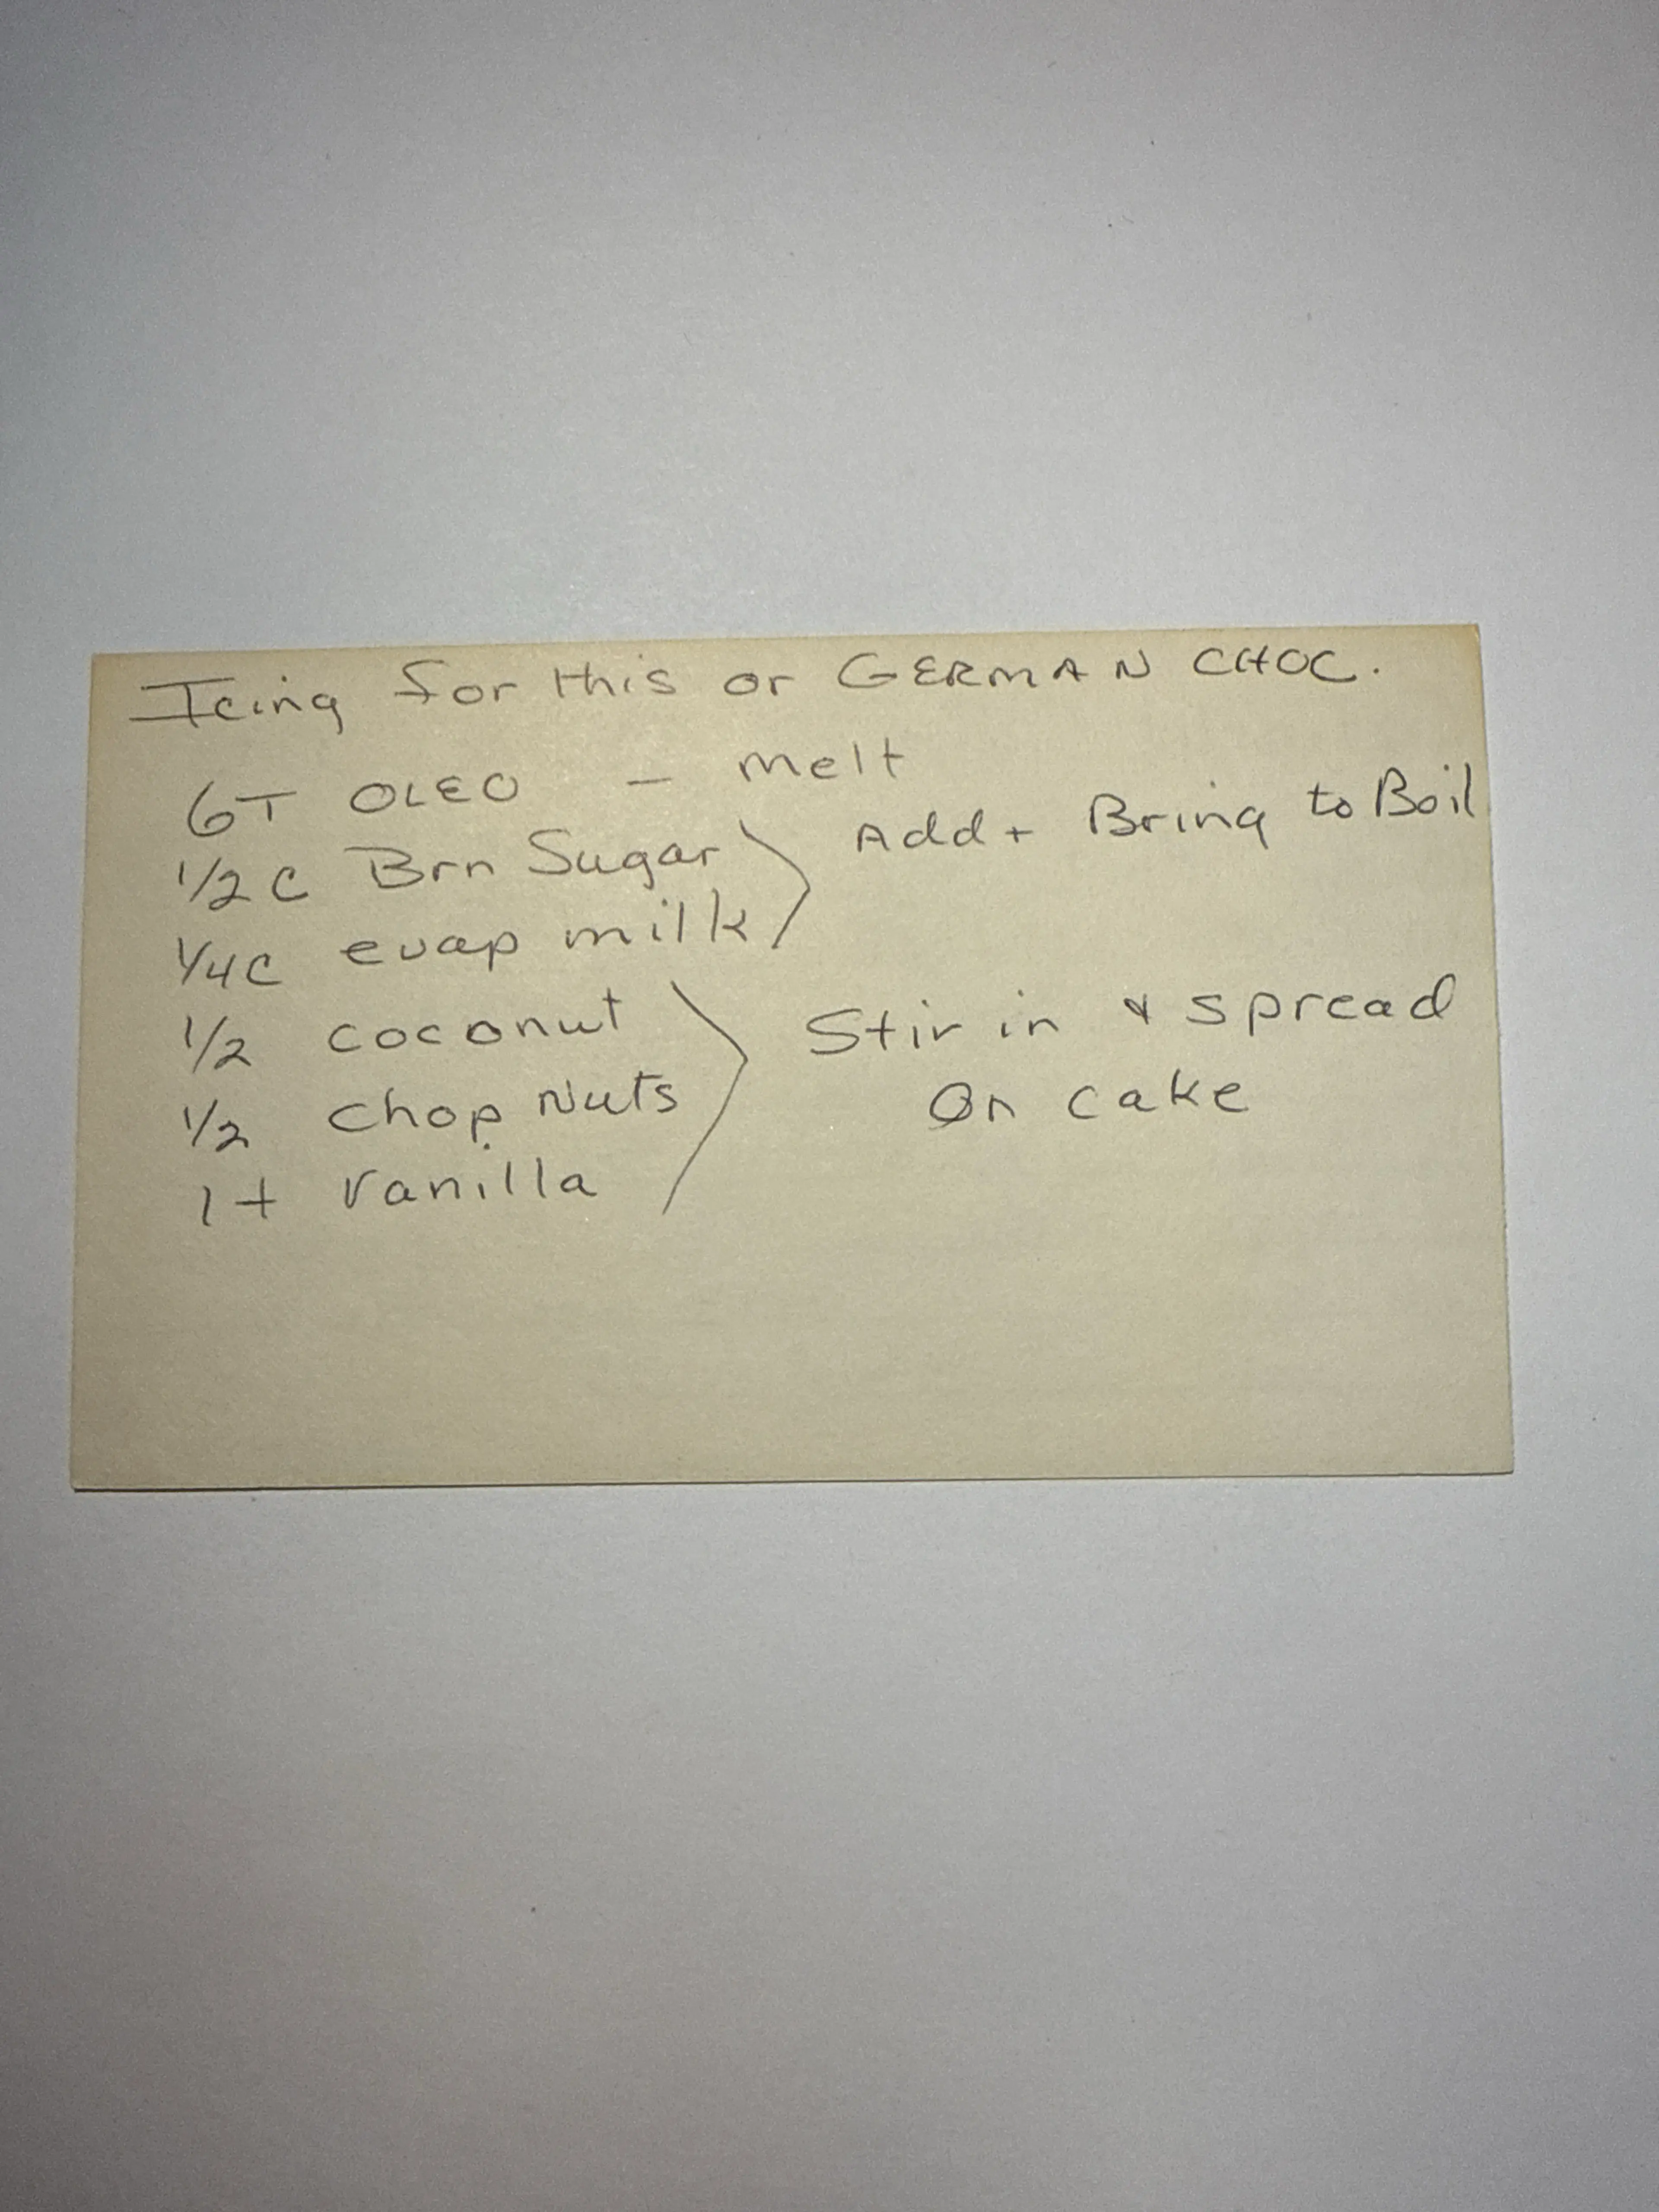 Icing for this or GERMAN CHOC.
6T OLEO - melt
1/2 C Brn Sugar Add + Bring to Boil
1/4C evap milk
1/2 coconut Stir in & spread
1/2 Chop Nuts On cake
1 t Vanilla